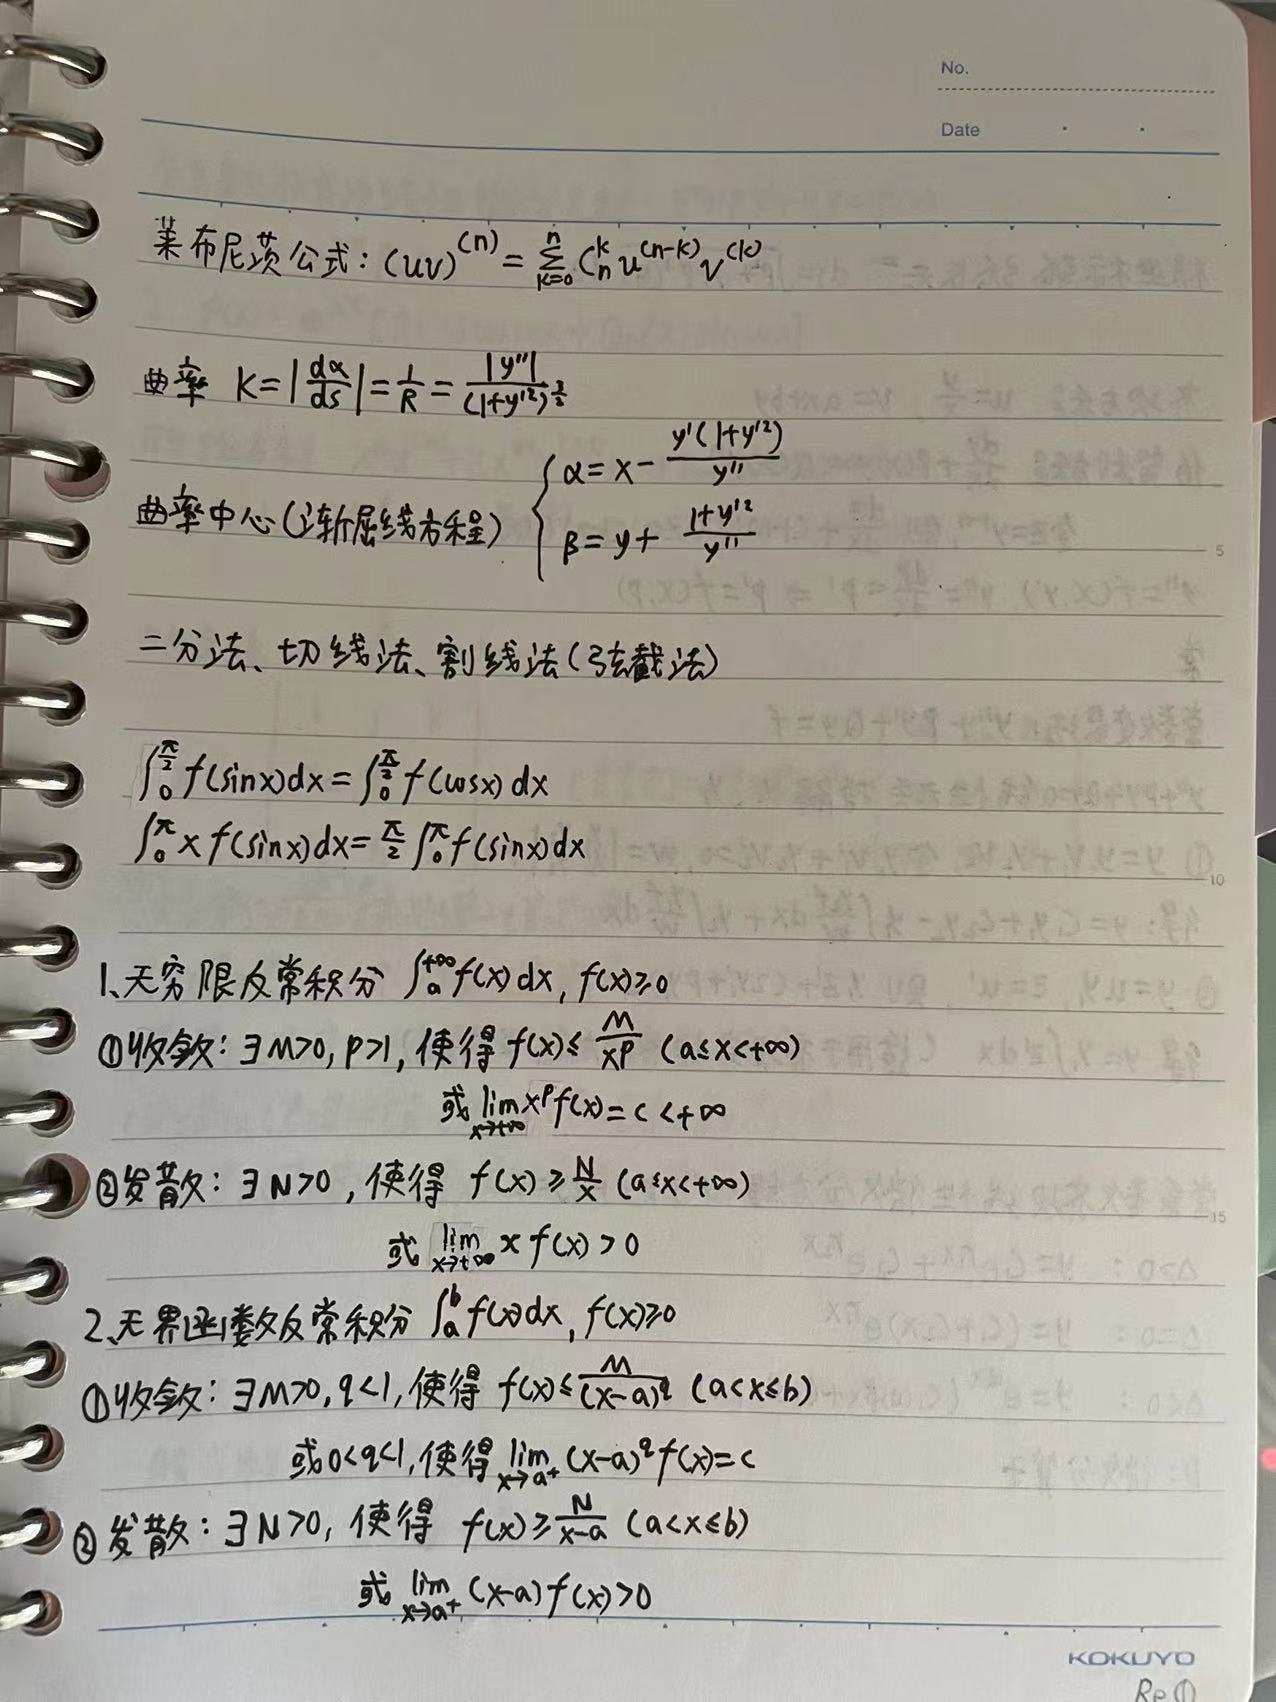 No.
Date
莱布尼茨公式: (uv)^(n) = ∑_{k=0}^{n} C_n^k u^(n-k) v^(k)
曲率 K = |dα/ds| = 1/R = |y''|/(1+y'²)^{3/2}
曲率中心(渐屈线方程) { α = x - y'(1+y'²)/y''
β = y + (1+y'²)/y''
5
二分法、切线法、割线法(弦截法)
∫_0^{π/2} f(sinx)dx = ∫_0^{π/2} f(cosx)dx
∫_0^π x f(sinx)dx = π/2 ∫_0^π f(sinx)dx
10
1、无穷限反常积分 ∫_a^{+∞} f(x)dx, f(x)≥0
①收敛: ∃M>0, p>1, 使得 f(x) ≤ M/x^p (a≤x<+∞)
或 lim_{x→+∞} x^p f(x) = c < +∞
②发散: ∃N>0, 使得 f(x) ≥ N/x (a≤x<+∞)
15
或 lim_{x→+∞} x f(x) > 0
2、无界函数反常积分 ∫_a^b f(x)dx, f(x)≥0
①收敛: ∃M>0, q<1, 使得 f(x) ≤ M/(x-a)^q (a<x≤b)
或 0<q<1, 使得 lim_{x→a⁺} (x-a)^q f(x) = c
②发散: ∃N>0, 使得 f(x) ≥ N/(x-a) (a<x≤b)
或 lim_{x→a⁺} (x-a) f(x) > 0
KOKUYO